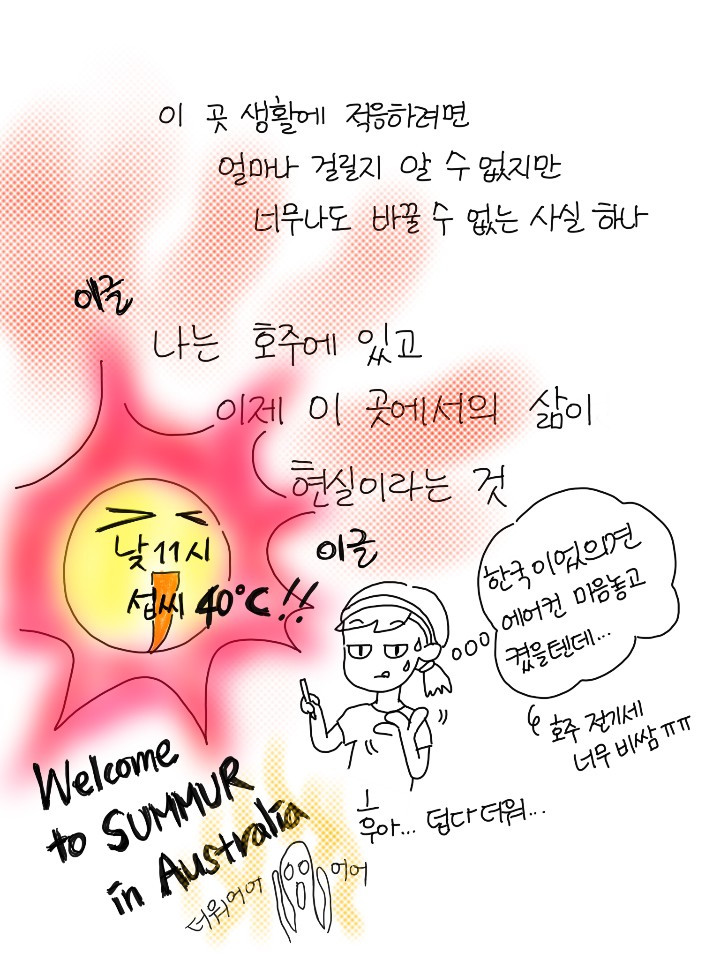 이 곳 생활에 적응하려면
얼마나 걸릴지 알 수 없지만
너무나도 바꿀 수 없는 사실 하나
이글
나는 호주에 있고
이제 이 곳에서의 삶이
현실이라는 것
이글
낮 11시
섭씨 40°C!!
한국이었으면
에어컨 마음놓고
켰을텐데...
호주 전기세
너무 비쌈 ㅠㅠ
Welcome
to SUMMUR
in Australia
후아... 덥다 더워...
더워어어 어어